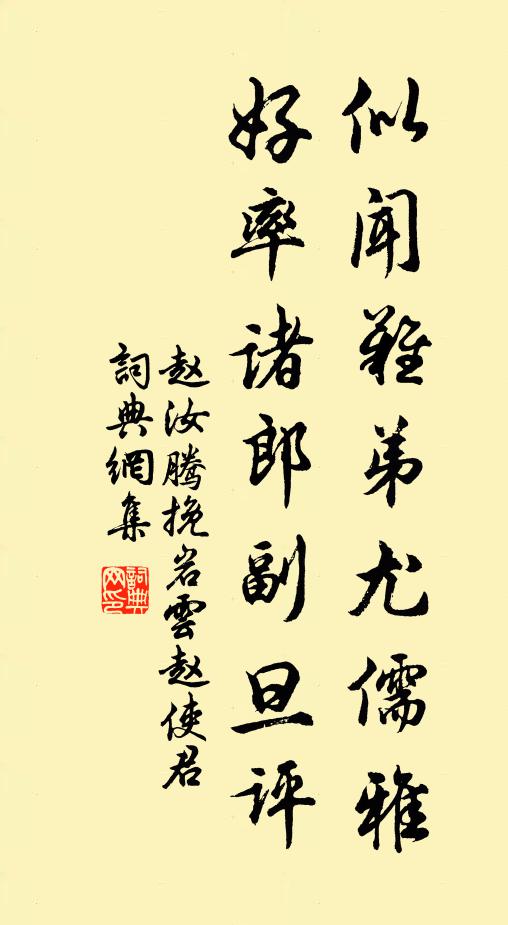 似闻難弟尤儒雅
好率诸郎副旦评
赵汝腾挽岩雲赵使君
詞典網集
詞典網印